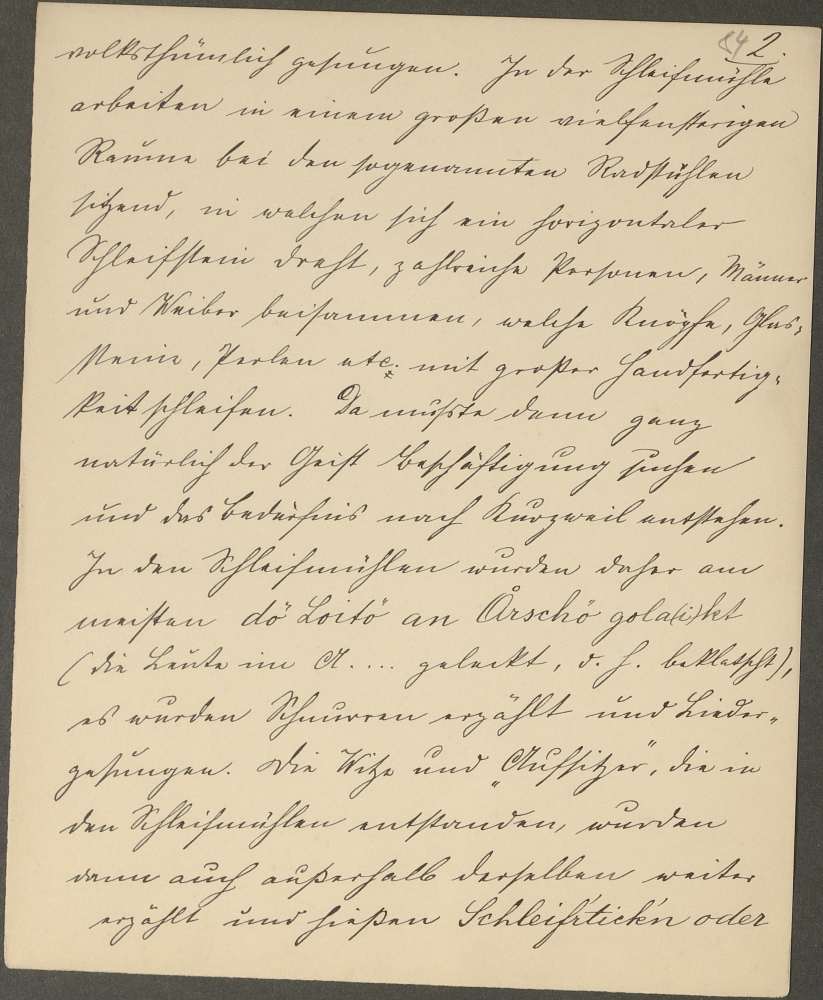 84 2.
volksthümlich gesungen. In der Schleifmühle
arbeiten in einem großen vielfensterigen
Raume bei den sogenannten Radstühlen
sitzend, in welchen sich ein horizontaler
Schleifstein dreht, zahlreiche Personen, Männer
und Weiber beisammen, welche Knöpfe, Glas-
steine, Perlen etc. mit großer Handfertig-
keit schleifen. Da mußte denn ganz
natürlich der Geist Beschäftigung suchen
und das Bedürfnis nach Kurzweil entstehen.
In den Schleifmühlen wurden daher am
meisten dö Loitö an Årschö gola(i)kt
(die Leute im A.... geleckt, d. h. beklatscht),
es wurden Schnurren erzählt und Lieder
gesungen. Die Witze und „Aufsitzer", die in
den Schleifmühlen entstanden, wurden
dann auch außerhalb derselben weiter
erzählt und hießen Schleif'rtick'n oder